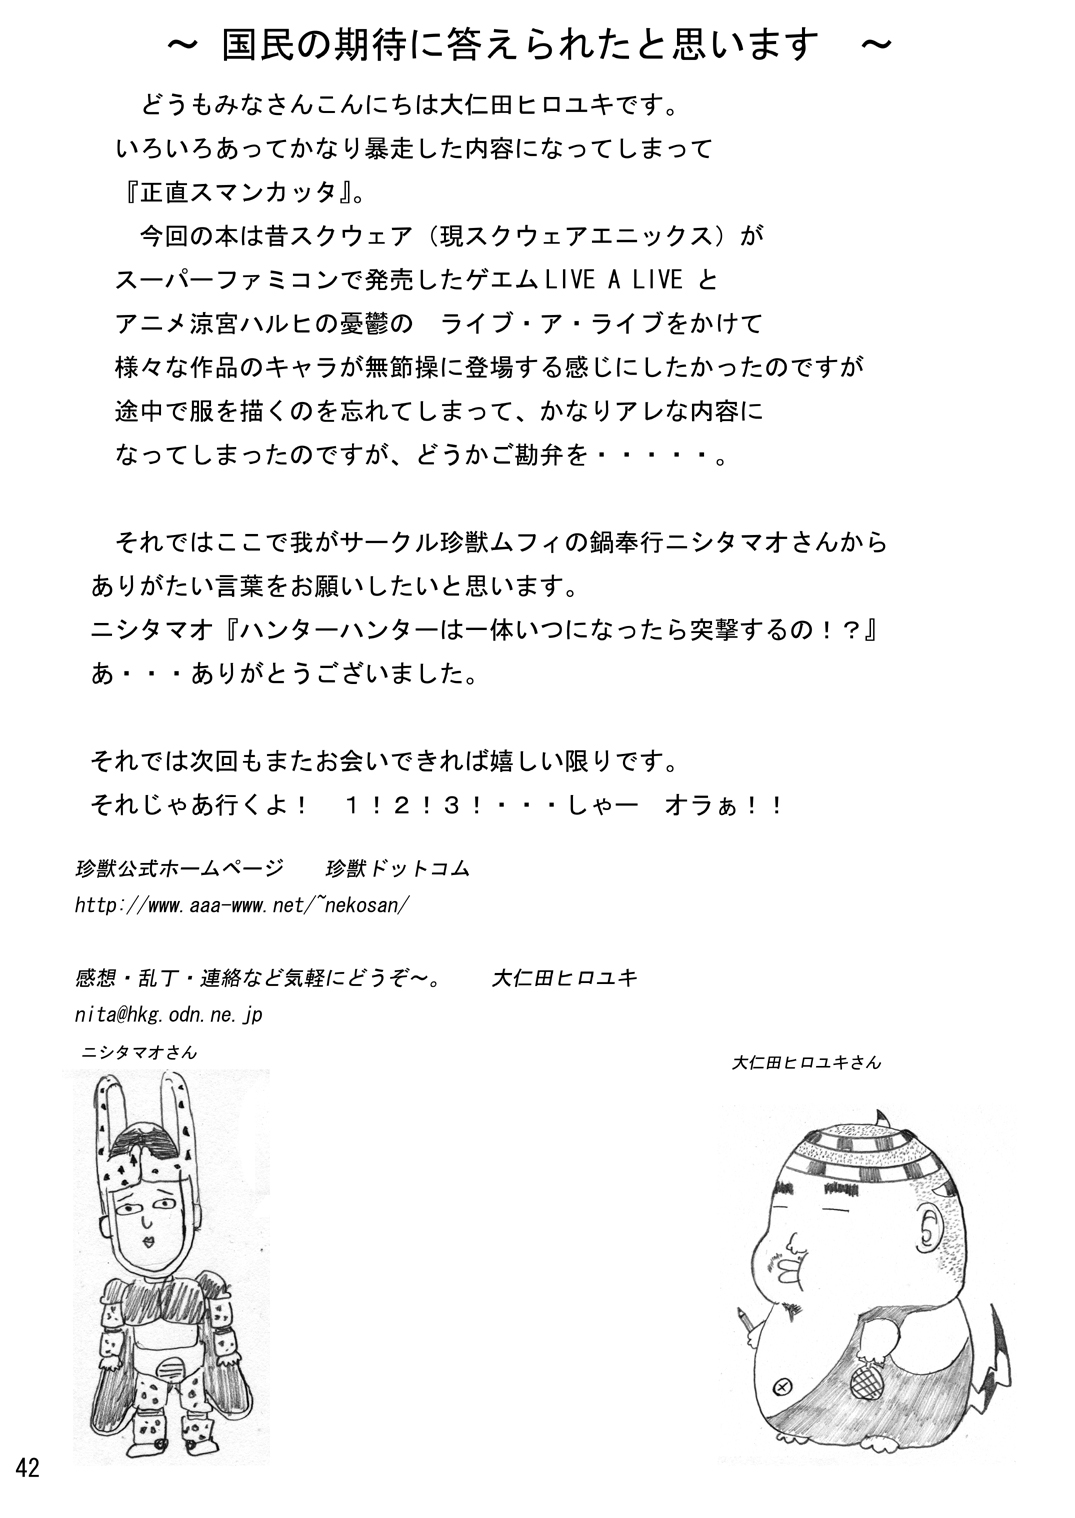 ～ 国民の期待に答えられたと思います　～
どうもみなさんこんにちは大仁田ヒロユキです。
いろいろあってかなり暴走した内容になってしまって
『正直スマンカッタ』。
今回の本は昔スクウェア（現スクウェアエニックス）が
スーパーファミコンで発売したゲエムLIVE A LIVE と
アニメ涼宮ハルヒの憂鬱の　ライブ・ア・ライブをかけて
様々な作品のキャラが無節操に登場する感じにしたかったのですが
途中で服を描くのを忘れてしまって、かなりアレな内容に
なってしまったのですが、どうかご勘弁を・・・・・。
それではここで我がサークル珍獣ムフィの鍋奉行ニシタマオさんから
ありがたい言葉をお願いしたいと思います。
ニシタマオ『ハンターハンターは一体いつになったら突撃するの！？』
あ・・・ありがとうございました。
それでは次回もまたお会いできれば嬉しい限りです。
それじゃあ行くよ！　１！２！３！・・・しゃー　オラぁ！！
珍獣公式ホームページ　　珍獣ドットコム
http://www.aaa-www.net/~nekosan/
感想・乱丁・連絡など気軽にどうぞ～。　　大仁田ヒロユキ
nita@hkg.odn.ne.jp
ニシタマオさん
大仁田ヒロユキさん
42